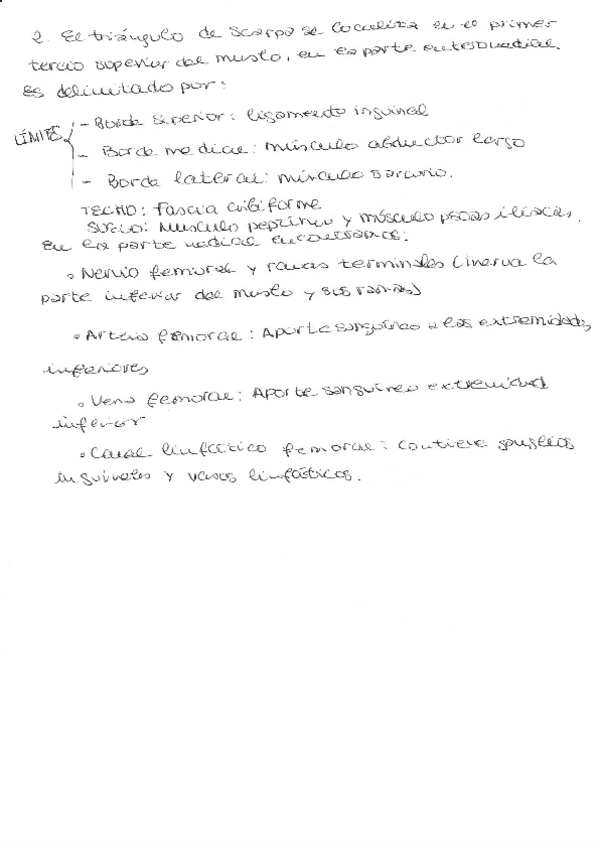 2. El triángulo de Scarpa se localiza en el primer
tercio superior del muslo, en la parte anteromedial.
Es delimitado por:
LÍMITES
- Borde superior: ligamento inguinal
- Borde medial: músculo abductor largo
- Borde lateral: músculo sartorio.
TECHO: Fascia cribiforme
SUELO: Músculo pectíneo y músculo psoas iliacas.
En la parte medial encontramos:
• Nervio femoral y ramas terminales (inerva la
parte inferior del muslo y sus ramas)
• Arteria femoral: Aporte sanguíneo a las extremidades
inferiores
• Vena femoral: Aporte sanguíneo extremidad
inferior
• Canal linfático femoral: contiene ganglios
inguinales y vasos linfáticos.